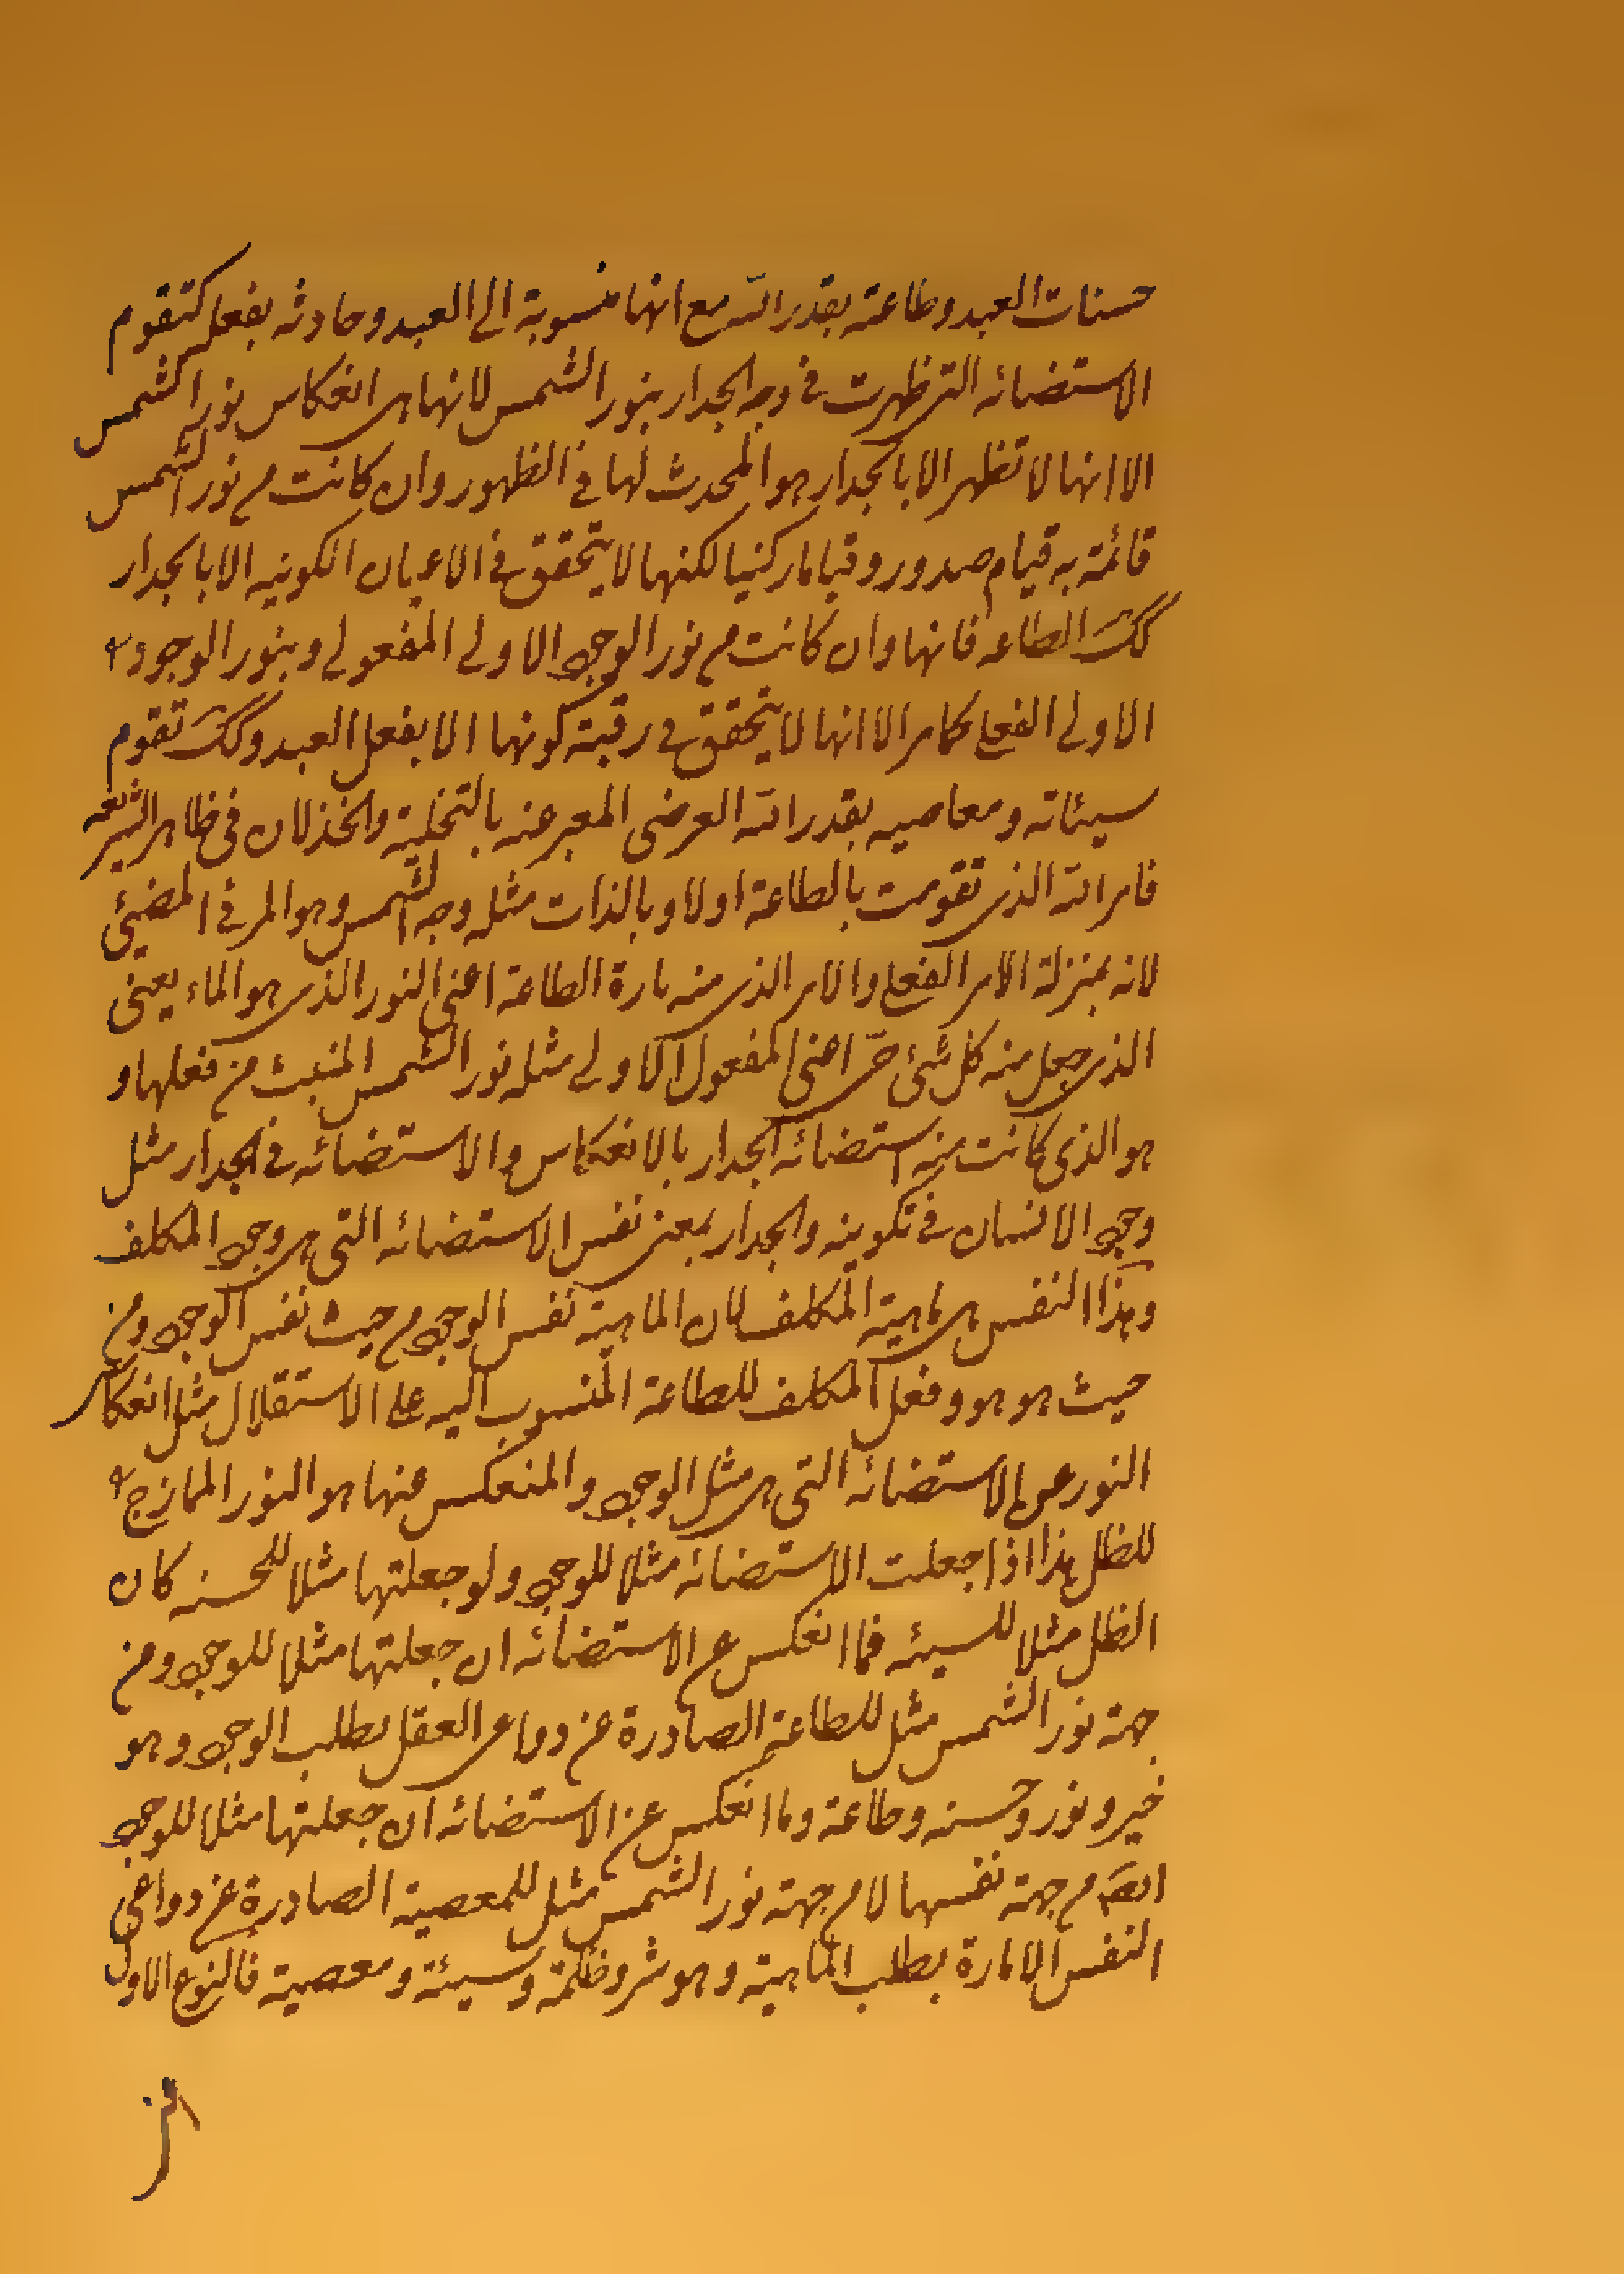 حسنات العبد وطاعته بقدر الله مع انها منسوبة الى العبد وحادثه بفعله كتقوم
الاستضائه التى ظهرت فى وجه الجدار بنور الشمس لانها هى انعكاس نور الشمس
الا انها لا تظهر الا بالجدار هو المحدث لها فى الظهور وان كانت م نور الشمس
قائمة به قيام صدور وقياما ركنيا لكنها لا يتحقق فى الاعيان الكونيه الا بالجدار
كك الطاعه فانها وان كانت م نور الوجو الاولى المفعولى وبنور الوجود
الاولى الفعلى كما مر الا انها لا يتحقق فى رقبة كونها الا بفعل العبد وكك تقوم
سيئاته ومعاصيه بقدر الله العرضى المعبر عنه بالتخلية والخذلان فى ظاهر الشريعه
فامر الله الذى تقومت بالطاعة اولا وبالذات مثله وجه الشمس وهو المرئى المضيئ
لانه بمنزلة الامر الفعلى والامر الذى منه مادة الطاعة اعنى النور الذى هو الماء يعنى
الذى جعل منه كل شئ حى اعنى المفعول الاولى مثله نور الشمس المنبث من فعلها و
هو الذى كانت منه استضائه الجدار بالانعكاس والاستضائه فى الجدار مثل
وجو الانسان فى تكوينه والجدار بمعنى نفس الاستضائه التى هى وجو المكلف
وهذا النفس هى ماهية المكلف لان الماهية نفس الوجو م حيث نفس الوجو ومن
حيث هو هو وفعل المكلف للطاعة المنسوب اليه على الاستقلال مثل انعكاس
النور عن الاستضائه التى هى مثل الوجو والمنعكس عنها هو النور الممازج
للظل هذا اذا جعلت الاستضائه مثلا للوجو ولو جعلتها مثلا للحسنه كان
الظل مثلا للسيئه فما انعكس عن الاستضائه ان جعلتها مثلا للوجو ومن
جهة نور الشمس مثل للطاعة الصادرة عن دواعى العقل بطلب الوجو وهو
خير ونور وحسنه وطاعة وما انعكس عن الاستضائه ان جعلتها مثلا للوجو
ايضا م جهة نفسها لا م جهة نور الشمس مثل للمعصية الصادرة عن دواعى
النفس الامارة بطلب الماهية وهو شر وظلمة وسيئة ومعصية فالنوع الاول